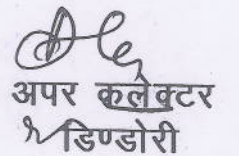 अपर कलेक्टर
डिण्डोरी